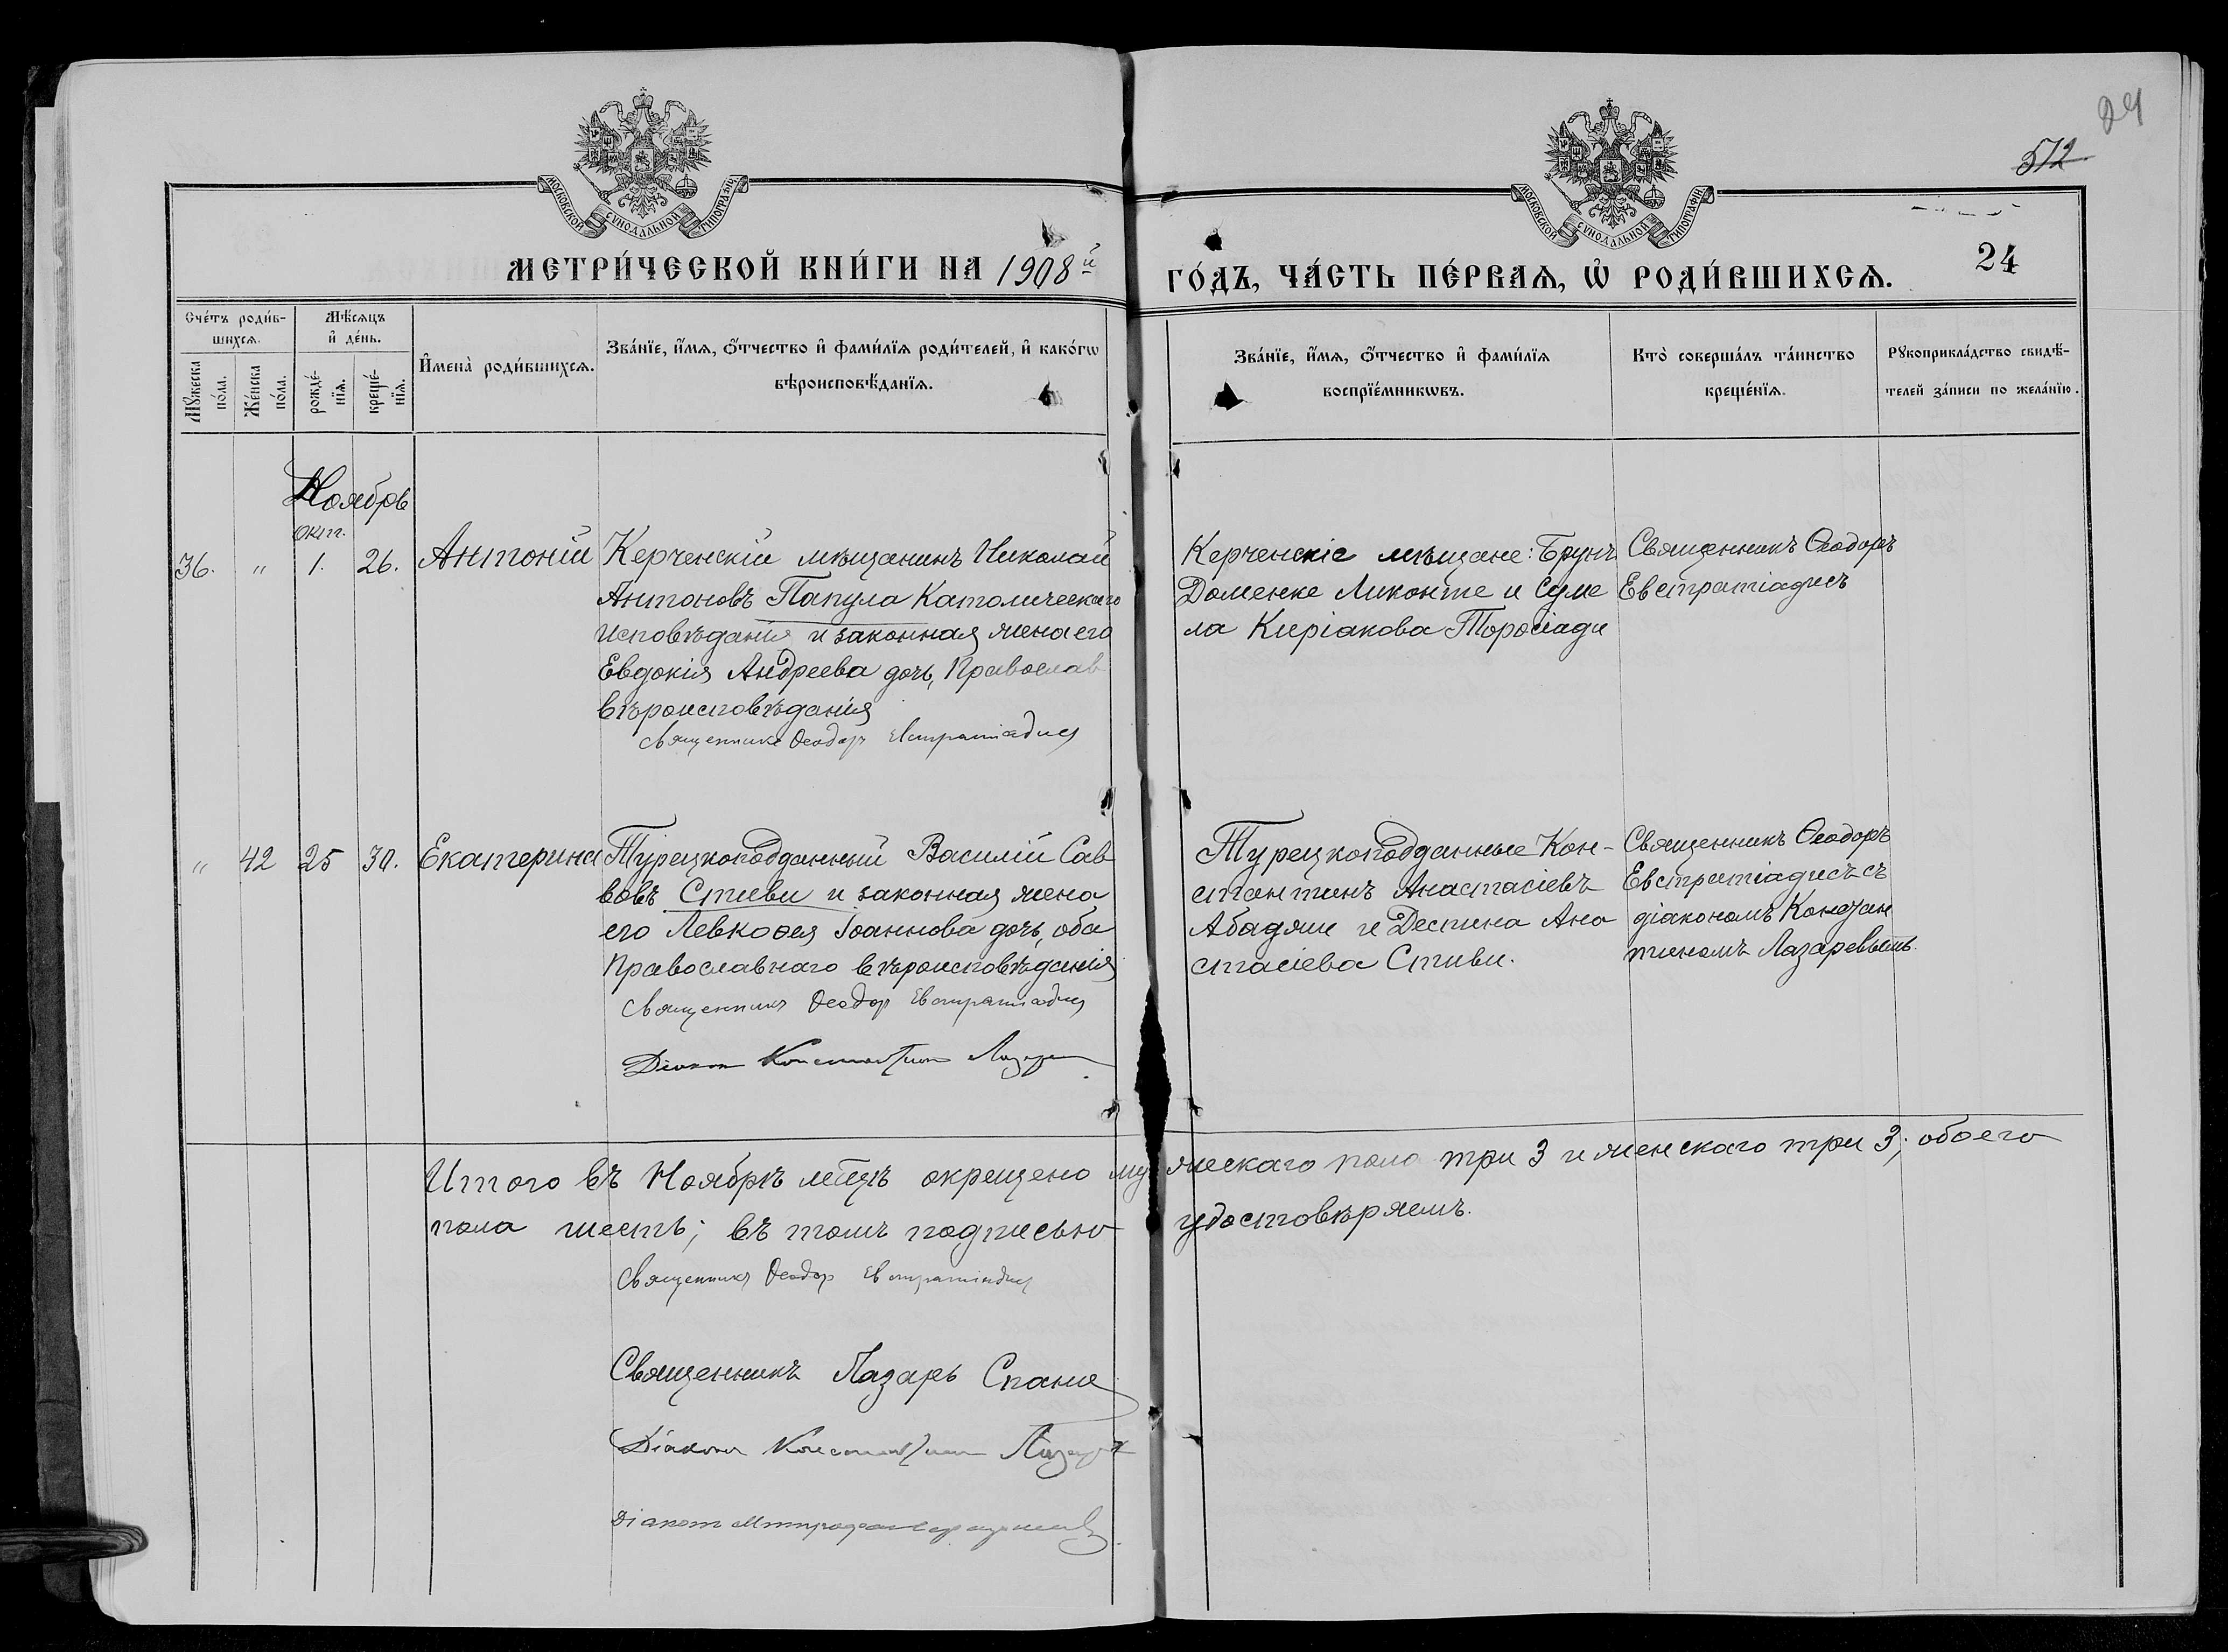 24
572
МОСКОВСКОЙ СѴНОДАЛЬНОЙ ТИПОГРАФІИ
МОСКОВСКОЙ СѴНОДАЛЬНОЙ ТИПОГРАФІИ
МЕТРИ́ЧЕСКОЙ КНИ́ГИ НА 1908й
ГО́ДЪ, ЧА́СТЬ ПЕ́РВАѦ, Ѡ҆ РОДИ́ВШИХСѦ.
24
Сче́тъ роди́в-
шихсѧ.
Мѣ́сѧцъ
и҆ де́нь.
Мꙋ́жеска
по́ла.
Же́нска
по́ла.
рожде́-
нїѧ.
креще́-
нїѧ.
И҆мена̀ роди́вшихсѧ.
Зва́нїе, и҆́мѧ, ѻ҆́тчество и҆ фами́лїѧ роди́телей, и҆ како́гѡ
вѣроисповѣ́данїѧ.
Зва́нїе, и҆́мѧ, ѻ҆́тчество и҆ фами́лїѧ
воспрїе́мникѡвъ.
Кто̀ соверша́лъ та́инство
креще́нїѧ.
Рꙋкоприкла́дство свидѣ́-
телей за́писи по жела́нїю.
Ноябрь
Окт.
36. " 1. 26. Антоній
Керченскій мѣщанинъ Николай
Антоновъ Папула Католическаго
исповѣданія и законная жена его
Евдокія Андреева дочь, Православ
вѣроисповѣданія
Священникъ Ѳеодоръ Евстратіадис
Керченскіе мѣщане: Брунъ
Доменке Ликонте и Суме
ла Киріакова Торосіади
Священникъ Ѳеодоръ
Евстратіадисъ
" 42 25 30. Екатерина
Турецкоподданный Василій Сав
вовъ Стиви и законная жена
его Левкоѳея Іоаннова дочь, оба
Православнаго вѣроисповѣданія
Священникъ Ѳеодор Евстратіадис
Діакон Константин Лазарев
Турецкоподданные Кон-
стантинъ Анастасіевъ
Абаджи и Деспина Ана
стасіева Стиви.
Священникъ Ѳеодоръ
Евстратіадисъ съ
діакономъ Констан
тиномъ Лазаревымъ.
Итого въ Ноябрѣ мѣцѣ окрещено му жескаго пола три 3 и женскаго три 3; обоего
пола шесть; въ томъ подписью удостовѣряемъ.
Священникъ Ѳеодор Евстратіадис
Священникъ Лазарь Спани
Діаконъ Константин Лазарев
Діаконъ Митрофан